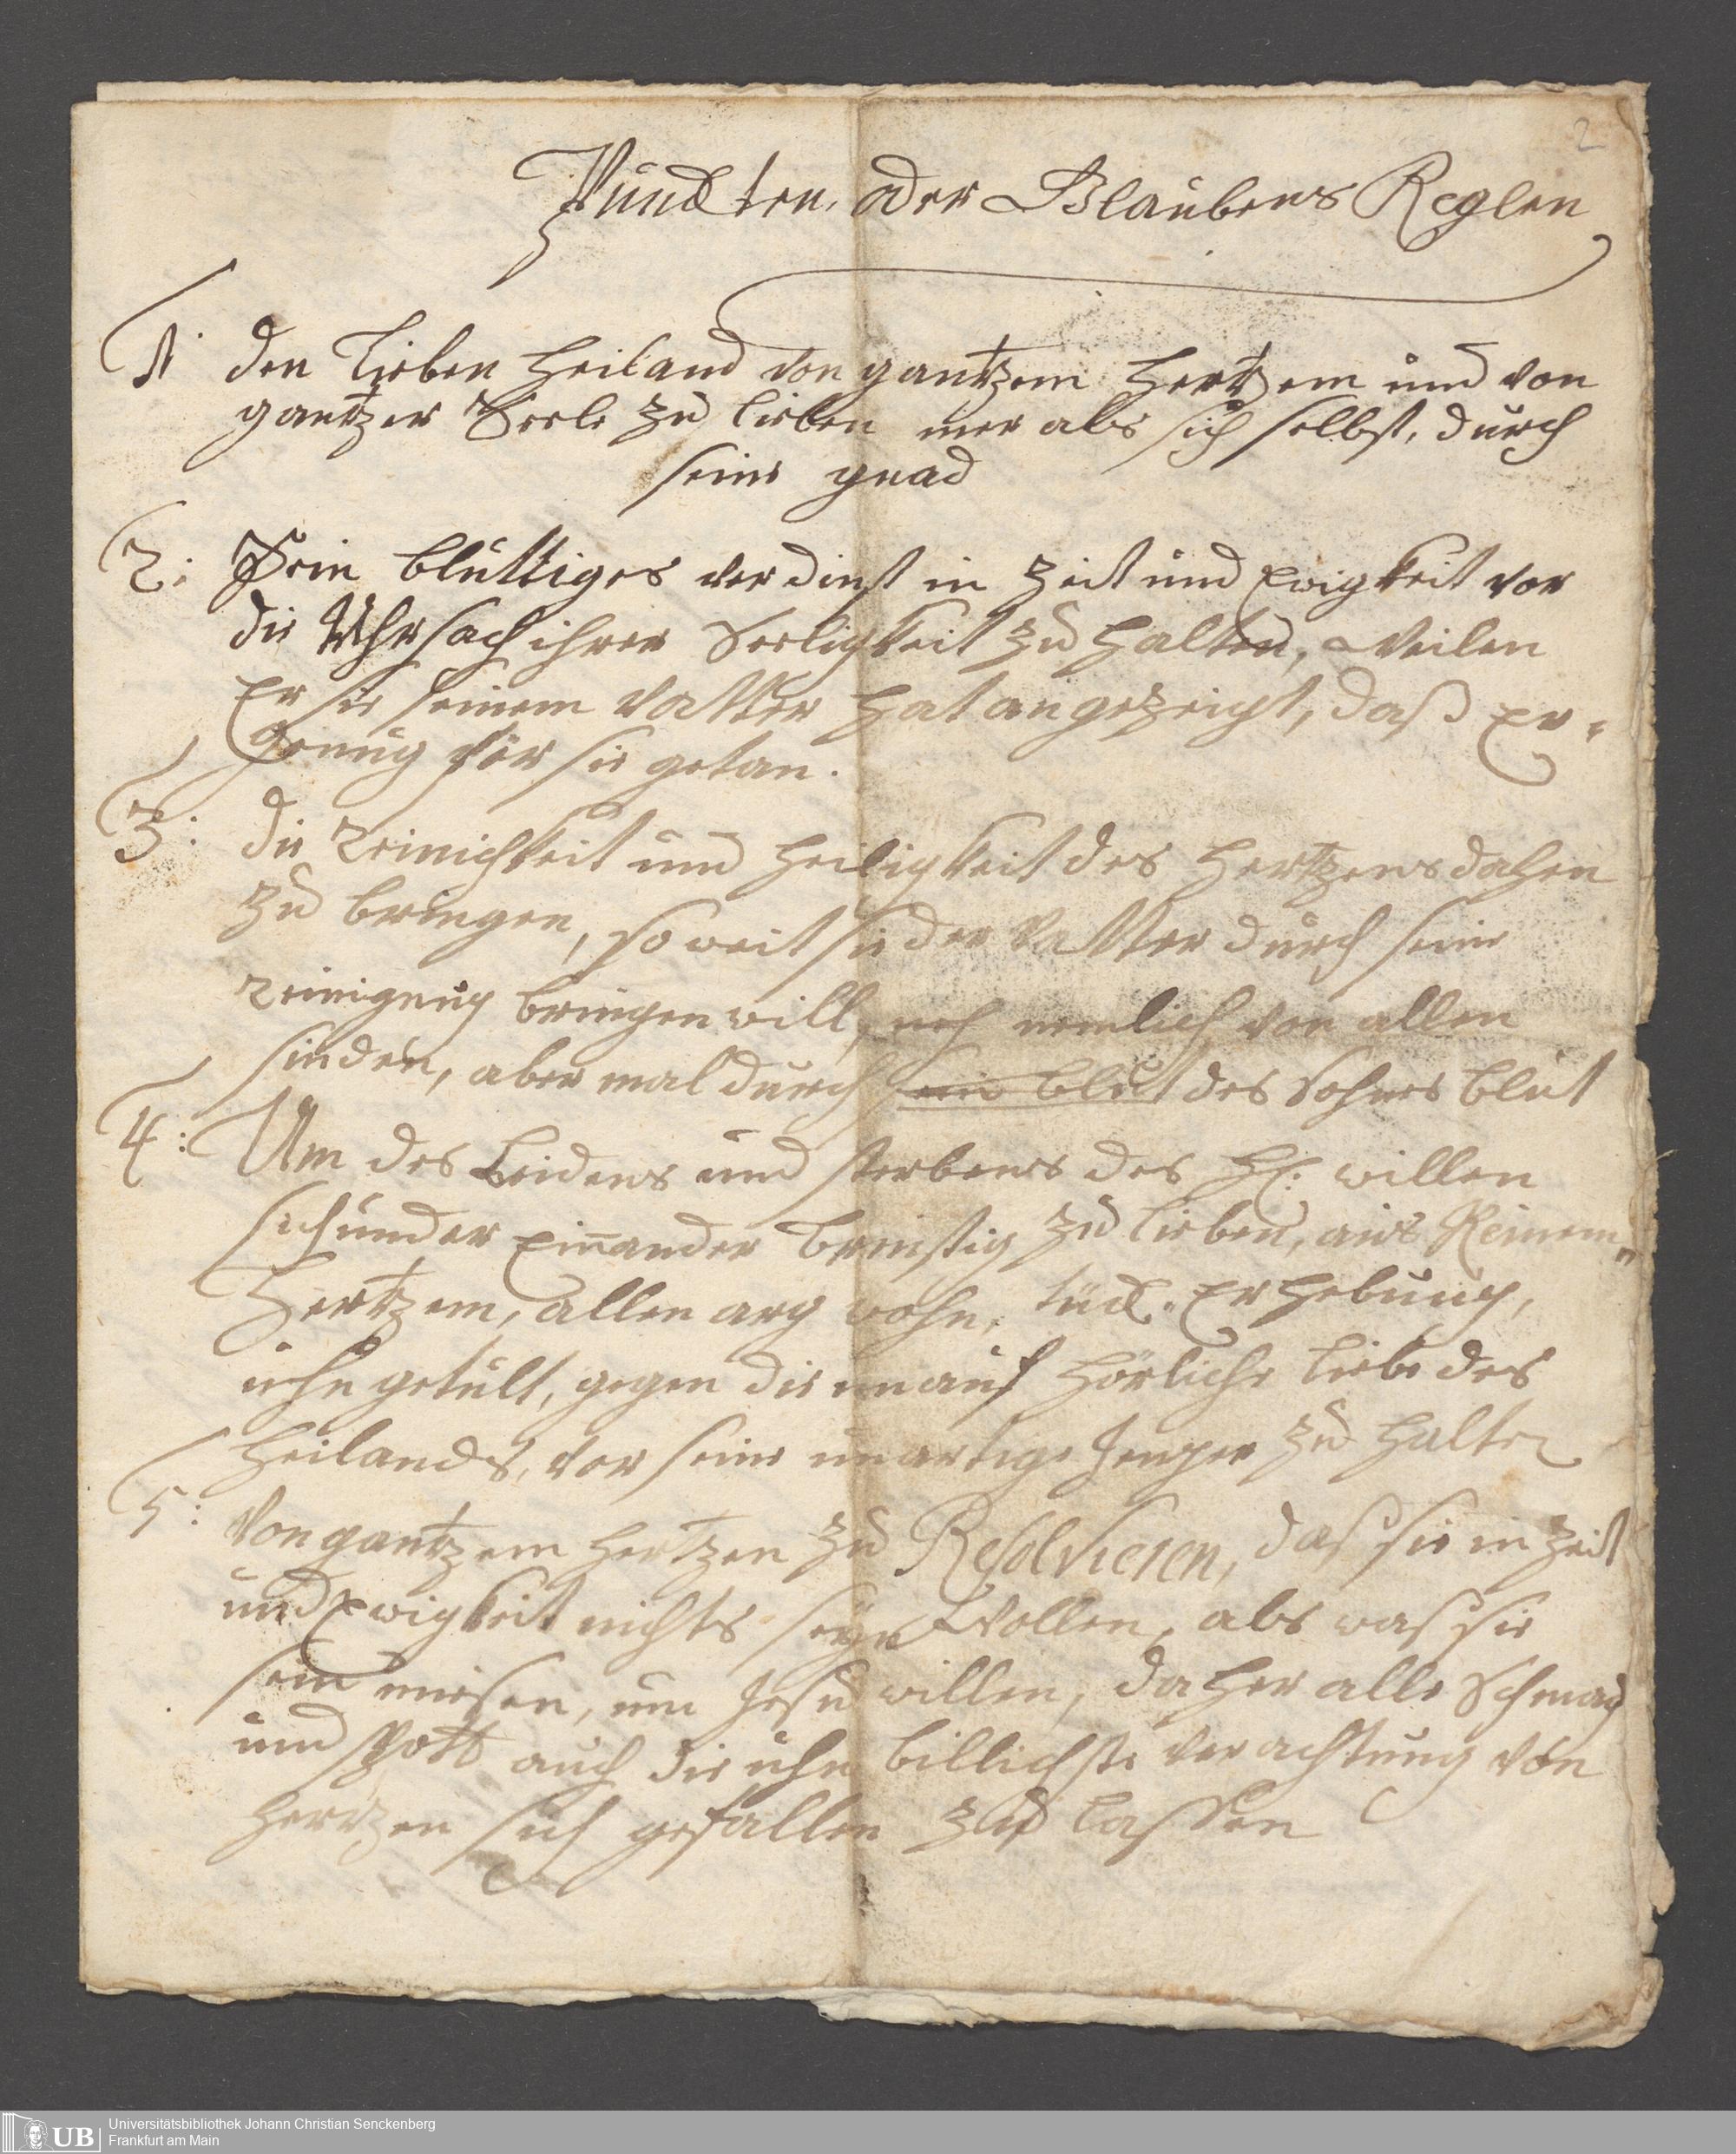 2
Punckten, oder Glaubens Reglen
1. den Lieben Heiland von gantzem Hertzem und von
gantzer Seele zu lieben mer als sich selbst, durch
seine gnad
2: Sein bluttiges verdinst in Zeit und Ewigkeit vor
die Uhrsach ihrer Seeligkeit zu halten, Weilen
Er sie seinem Vatter hat angezeigt, daß Er
genug för sie getan.
3: die reinichkeit und Heiligkeit des Hertzens dahen
zu bringen, so weit sie der Vatter durch seine
reinigung bringen will, nemlich von allen
sinden, aber mal durch sein blut des Sohnes blut
4: Um des Leidens und sterbens des Hl: willen
sich under Einander brinstig zu lieben, aus Reinem
Hertzem, allen arg wohn, tück. Erhebung,
uhn getult, gegen die un auf hörliche liebe des
Heilands, vor seine unartige Jenger zu halten
5: Von gantzem Hertzen zu Resolvieren, daß sie in Zeit
und Ewigkeit nichts seyn Wollen, als was sie
sein miesen, um Jesu willen, daher alle Schmach
und spott auch die uhn billichste verachtung von
Hertzen sich gefallen zu lassen
UB
Universitätsbibliothek Johann Christian Senckenberg
Frankfurt am Main